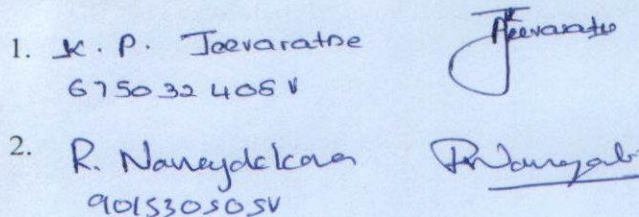 1. K. P. Jeevaratne Jeevaratne
675032405V
2. R. Nanaydakara
901530505V